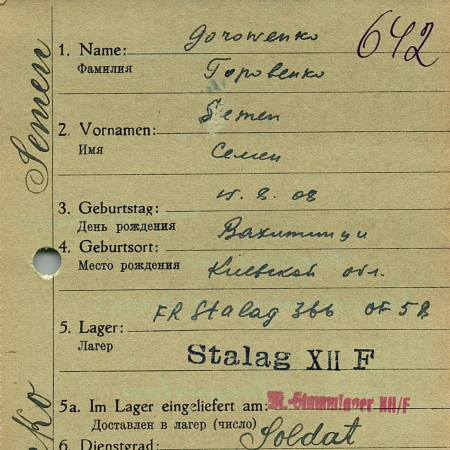 642
Gorowenko
1. Name:
Фамилия
Горовенко
Semen
2. Vornamen:
Имя
Семен
3. Geburtstag:
День рождения
4. Geburtsort:
Место рождения
Киевской обл.
FR Stalag 366
5. Lager:
Лагерь
Stalag XII F
5a. Im Lager eingeliefert am: M.-Stammlager XII/F
Доставлен в лагерь (число)
6. Dienstgrad: Soldat
Semen